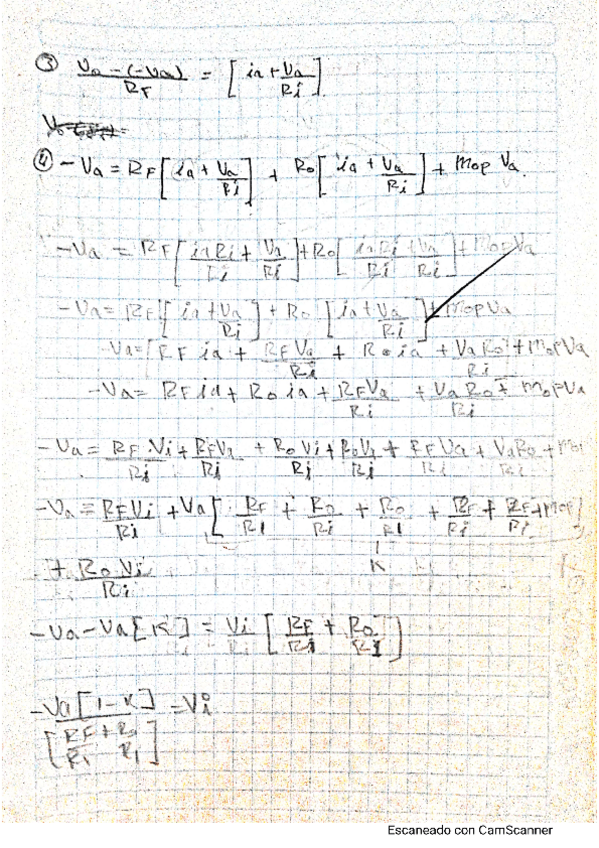 ③ (Vo - (-Va)) / RF = [ia + Va/Ri]
④ -Va = RF[ia + Va/Ri] + Ro[ia + Va/Ri] + Mop Va.
-Va = RF[iaRi/Ri + Va/Ri] + Ro[iaRi/Ri + Va/Ri] + Mop Va
-Va = RF[ia + Va/Ri] + Ro[ia + Va/Ri] + Mop Va
-Va = [RF ia + RF Va/Ri + Ro ia + Va Ro/Ri + Mop Va
-Va = RF ia + Ro ia + RF Va/Ri + Va Ro/Ri + Mop Va
-Va = RF Vi/Ri + RF Va/Ri + Ro Vi/Ri + Ro Va/Ri + RF Va/Ri + Va Ro/Ri + Mo
-Va = RF Vi/Ri + Va[RF/R1 + Ro/Ri + Ro/R1 + RF/Ri + RF/Ri + Mop]
+ Ro Vi/Ri K
-Va - Va[K] = Vi/Ri [RF/Ri + Ro/R1]
-Va[1 - K] / [RF/Ri + Ro/R1] = Vi
Escaneado con CamScanner